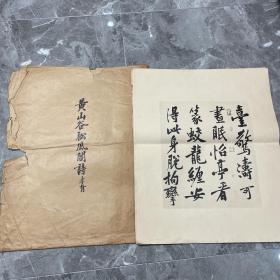 黄山谷松风阁诗
臺驚濤可
晝眠怡亭看
篆蛟龍纏安
得此身脱拘攣